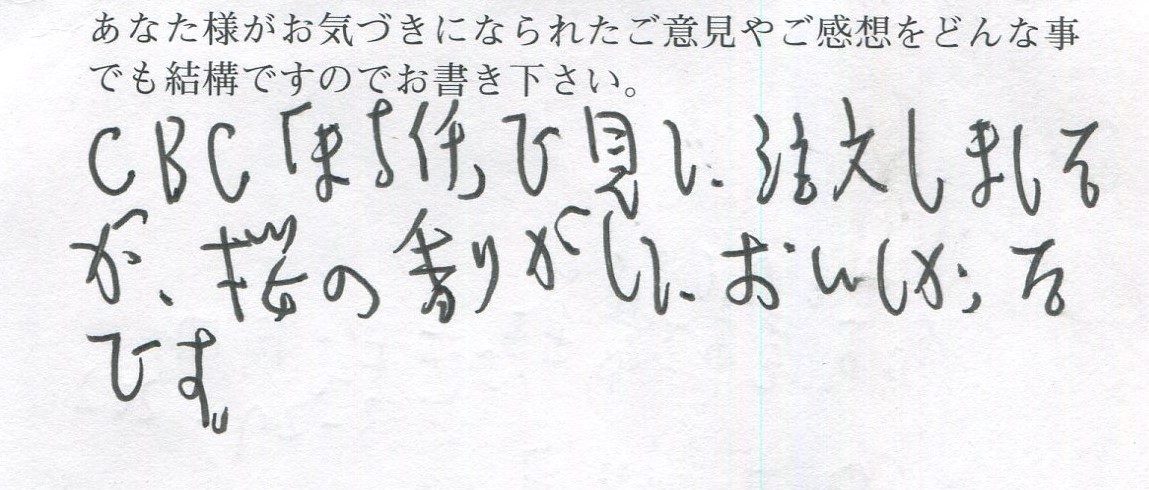 あなた様がお気づきになられたご意見やご感想をどんな事
でも結構ですのでお書き下さい。
CBC「まち佳」で見て、注文しました
が、桜の香りがして、おいしかった
です。